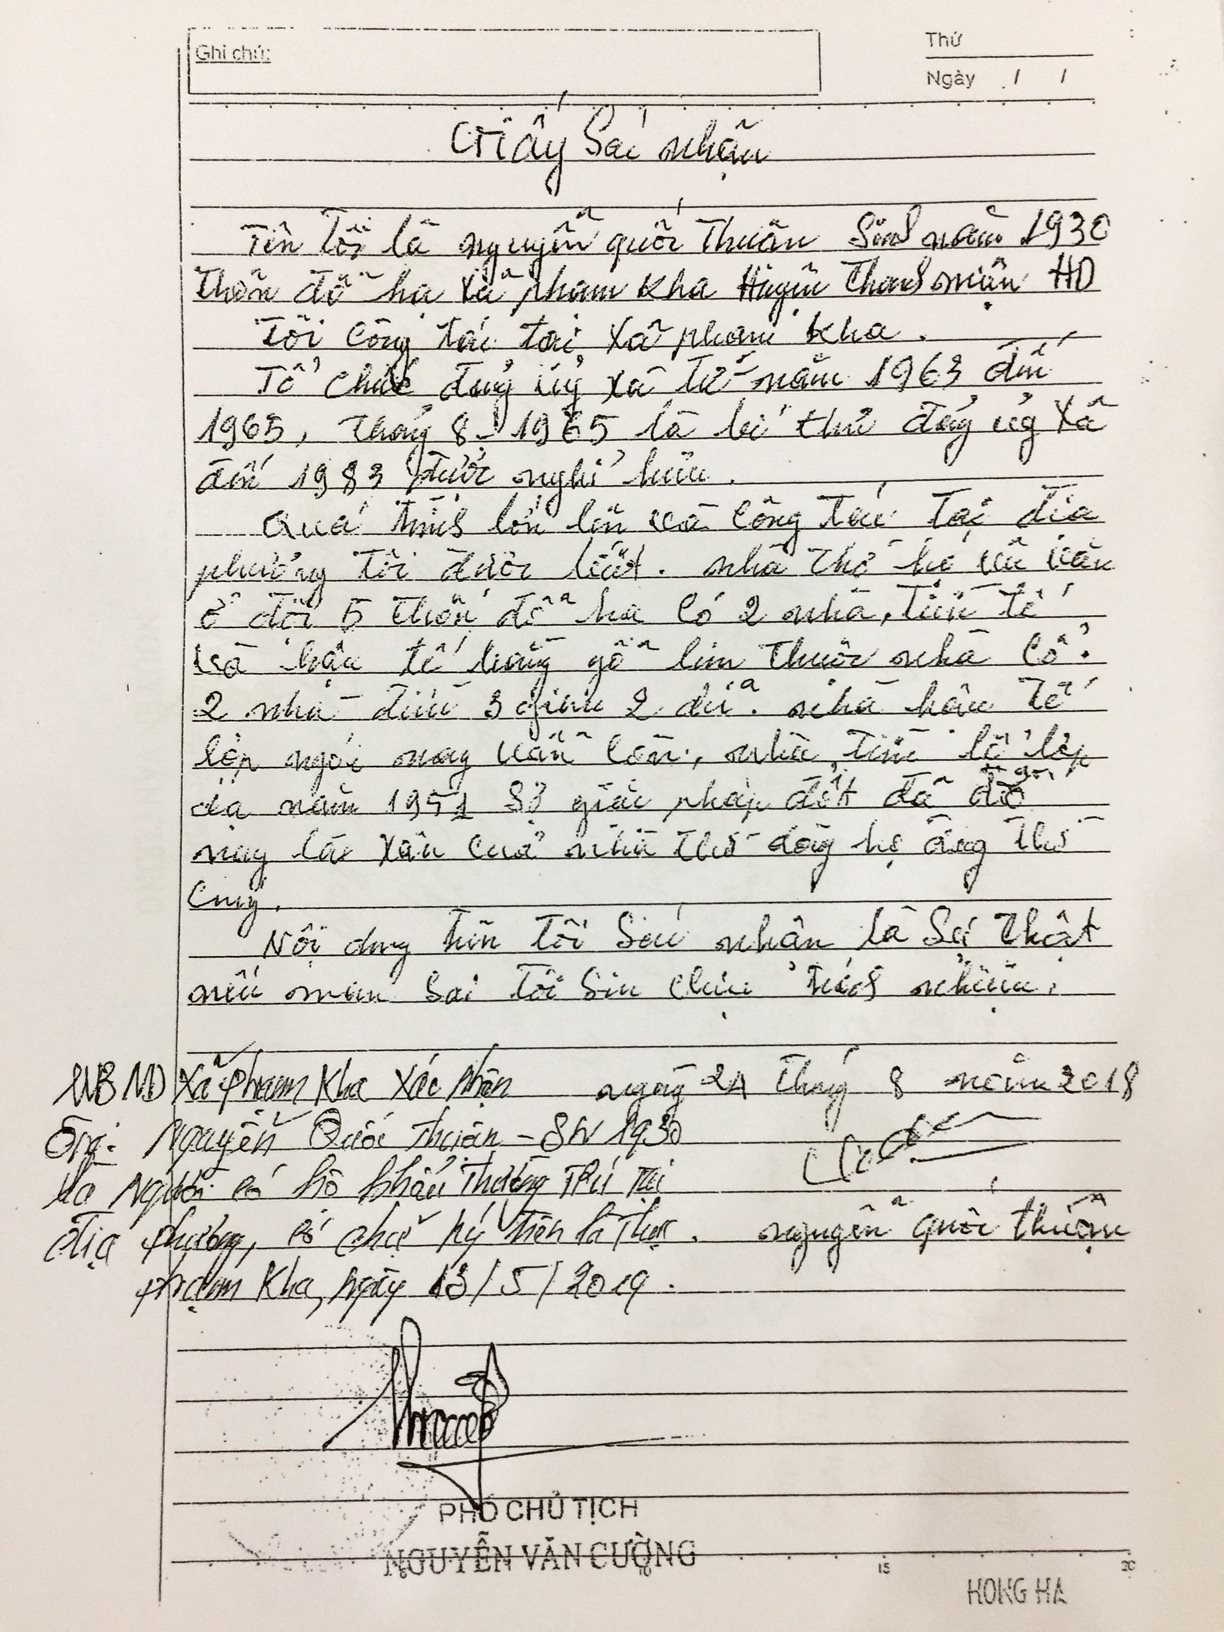 Ghi chú:
Thứ
Ngày / /
Giấy Sác nhận
Tên Tôi là nguyễn quốc Thuân Sinh năm 1930
Thôn đỗ hạ xã phạm kha Huyện Thanh miện HD
Tôi công tác tại xã phạm kha.
Tổ chức đảng ủy xã từ năm 1963 đến
1965, Tháng 8-1965 là bí thư đảng ủy xã
đến 1983 được nghỉ hưu.
Quá trình lớn lên và công tác tại địa
phương tôi được biết. nhà thờ họ vũ văn
ở đội 5 thôn đỗ hạ có 2 nhà, Tiền tế
và hậu tế bằng gỗ lim thuộc nhà cổ.
2 nhà đều 3 gian 2 dĩ. nhà hậu tế
lợp ngói nay vẫn còn, nhà tiền tế lợp
dạ năm 1951 Sợ giặc pháp đốt đã dỡ
nay là sân của nhà thờ dòng họ đang thờ
cúng.
Nội dung trên tôi Sác nhận là Sự thật
nếu man Sai tôi Sin chịu trách nhiệm.
UBND xã Phạm Kha xác nhận ngày 24 tháng 8 năm 2018
Ông: Nguyễn Quốc Thuận - SN 1930
Là người có hộ khẩu thường trú tại
địa phương, có chữ ký trên là thực. nguyễn quốc thuận
Phạm Kha, ngày 13/5/2019.
PHÓ CHỦ TỊCH
NGUYỄN VĂN CƯỜNG
15 20
HONG HA